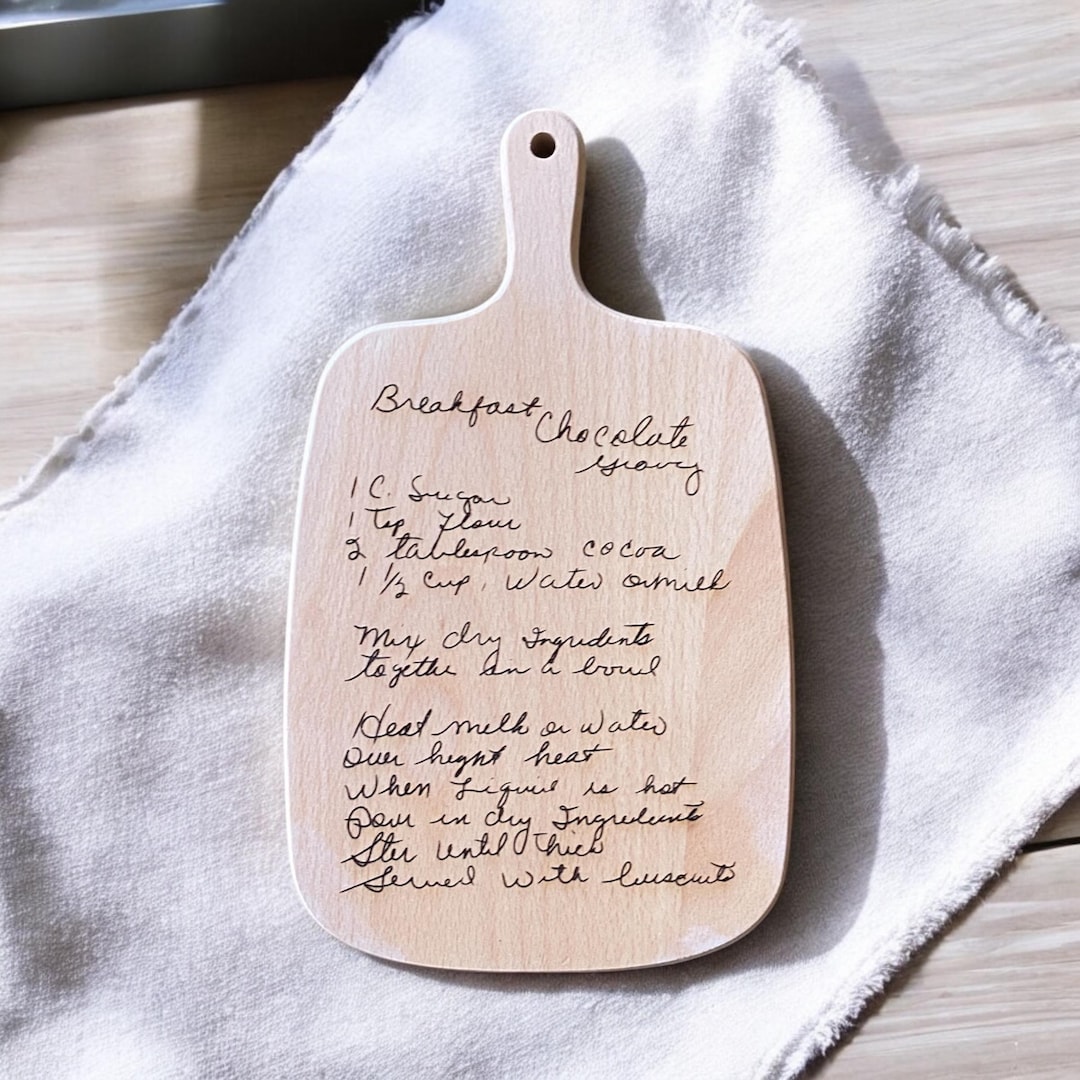 Breakfast
Chocolate
Gravy
1 C. Sugar
1 Tsp Flour
2 tablespoon cocoa
1 1/2 Cup, Water or milk
Mix dry Ingridents
together in a bowl
Heat milk or water
Over hight heat
When Liquid is hot
Pour in dry Ingredients
Ster until thick
Served with buscuits